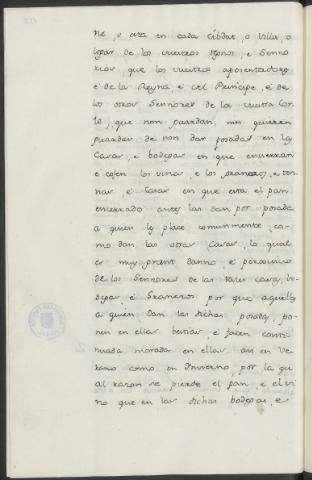 ne, o era en cada Cibdat, o Villa, o
lugar de los vuestros regnos, é Senno
rios, que los vuestros aposentadores
é de la Reyna, é del Principe, é de
los otros Sennores de la vuestra Cor
te, que non guardan, nin quieren
guardar de non dar posadas en las
Casas, é bodegas en que encierran
é cojen los vinos, é los graneros, é te
nas, é Casas en que esta el pan
encerrado antes las dan por posada
a quien les place comunmente, co-
mo dan las otras Casas, lo qual
es muy grant danno é perjuicio
de los Sennores de las tales casas, bo
degas, é Graneros por que aquellos
a quien dan las dichas posadas, po-
nen en ellas bestias, é facen conti-
nuada morada en ellas, asi en Ve
rano como en Invierno, por la qu
al razon se pierde el pan, é el vi
no que en las dichas bodegas, é